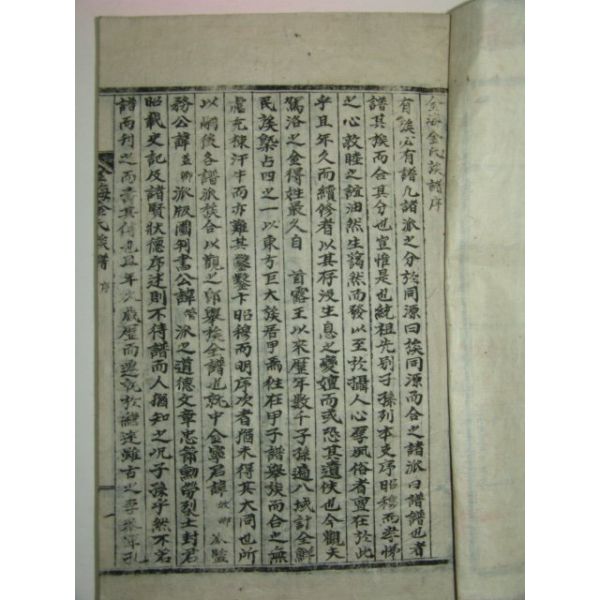 金海金氏族譜序
有族必有譜凡諸派之分於同源曰族同源而合之諸派曰譜譜也者
譜其族而合其分也宜惟是也統祖先别子孫列本支序昭穆而孝悌
之心敦睦之誼油然生藹然而發以至於攝人心厚風俗者亶在於此
乎且年久而續修者以其存沒生息之變嬗而或恐其遺佚也今觀天
駕洛之金得姓最久自 首露王以來歷年數千子孫遍八域計全鮮
民族槩占四之一以東方巨大族居甲焉往在甲子譜擧族而合之無
慮充棟汗牛而亦難其鑿鑿卞昭穆而明序次者猶未得其大同也所
以嗣後各譜派族合以觀之卽擧族全譜也就中金寧君諱
務公諱 派版圖判書公諱 派之道德文章忠節勳勞裂土封君
昭載史記及諸賢狀德序述則不待譜而人猶知之况子孫乎然不若
譜而刊之而壽其傳也且年久歲歷而
金海金氏族譜 序